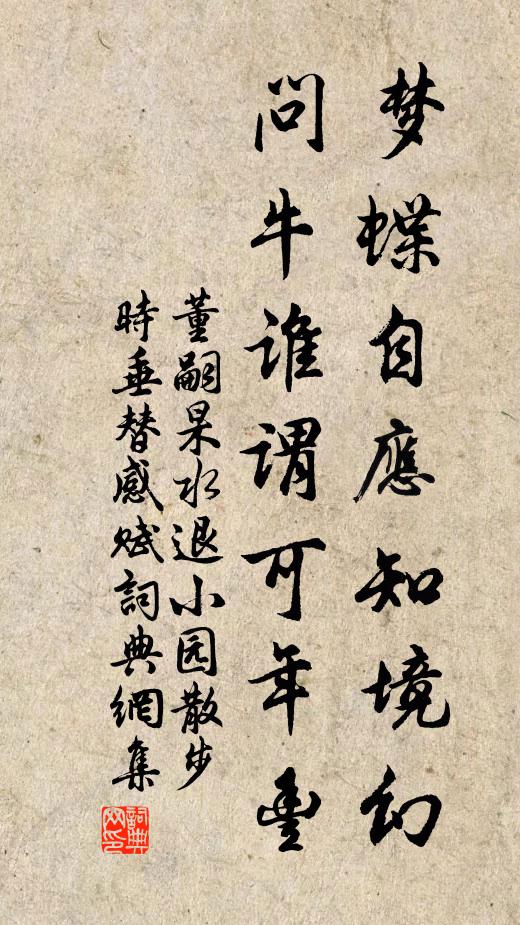 梦蝶自應知境幻
問牛誰謂可年豊
董嗣杲水退小园散步
時垂替感赋詞典網集
詞典網印